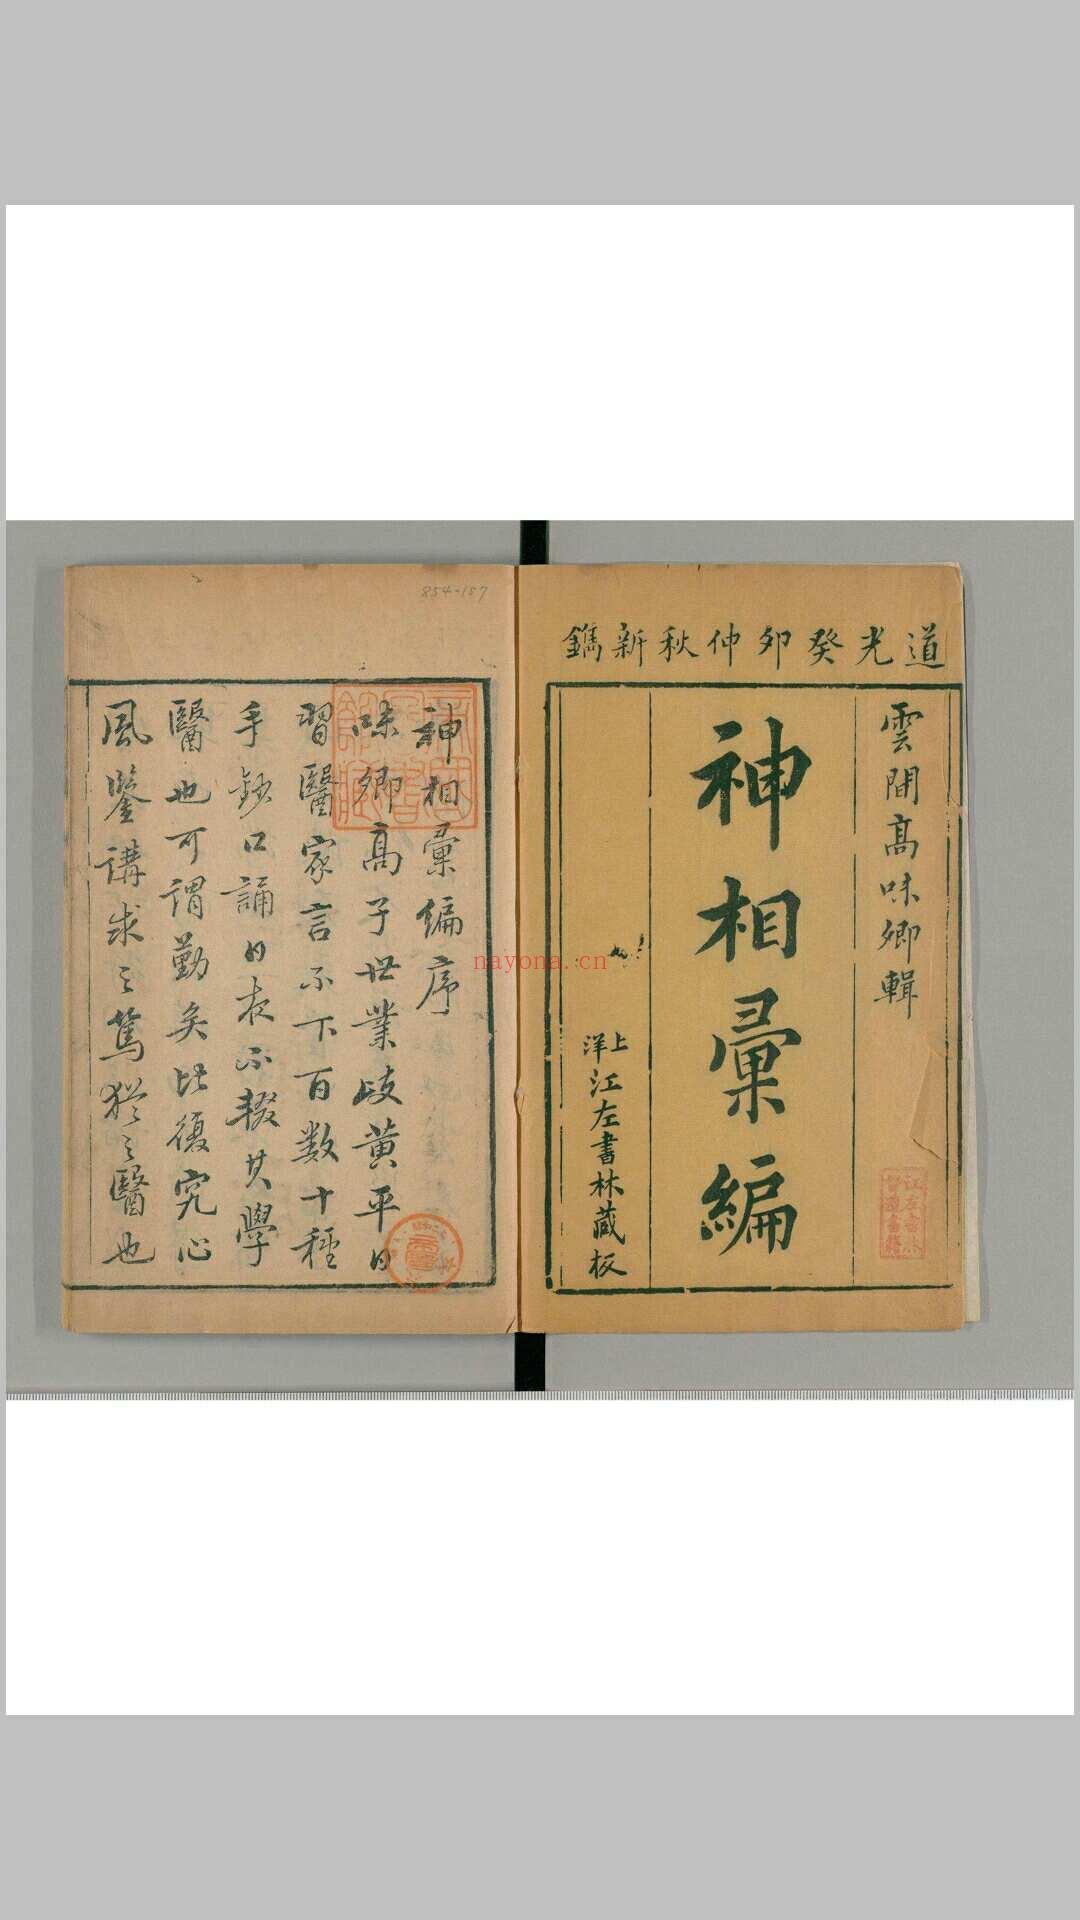 道光癸卯仲秋新鐫
雲間高味卿輯
神相彙編
上洋江左書林藏板
854-157
神相彙編序
味卿高子世業歧黃平日
習醫家言不下百數十種
手鈔口誦日夜不輟其學
醫也可謂勤矣比復究心
風鑒講求之篤猶之醫也
nayona.cn